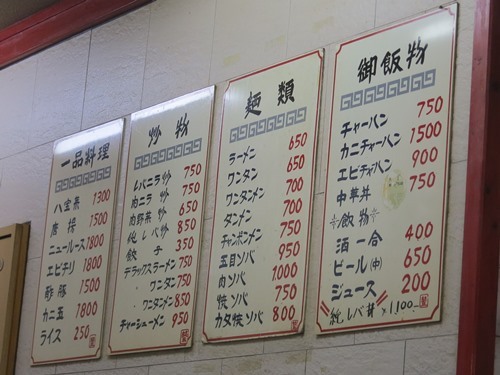 一品料理
八宝菜 1300
唐揚 1500
ニュールース 1800
エビチリ 1800
酢豚 1500
カニ玉 1800
ライス 250
炒物
レバニラ炒 750
肉ニラ炒 750
肉野菜炒 650
純レバ炒 850
餃子 350
デラックスラーメン 750
〃 ワンタン 750
〃 ワンタメン 850
チャーシューメン 950
麺類
ラーメン 650
ワンタン 650
ワンタンメン 700
タンメン 700
チャンポンメン 750
五目ソバ 950
肉ソバ 1000
焼ソバ 750
カタ焼ソバ 800
御飯物
チャーハン 750
カニチャーハン 1500
エビチャハン 900
中華丼 750
飲物
酒一合 400
ビール(中) 650
ジュース 200
純レバ丼 1,100